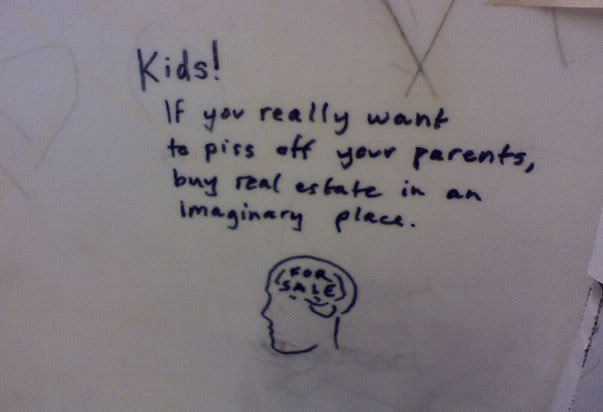 Kids!
If you really want
to piss off your parents,
buy real estate in an
imaginary place.
FOR
SALE